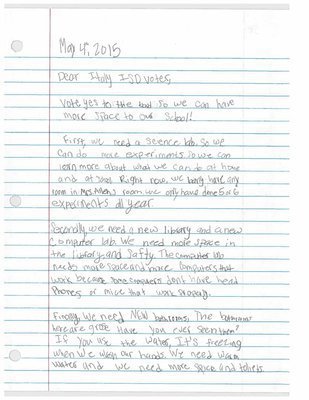 May 4, 2015
Dear Italy ISD Votes,
Vote yes to the bond so we can have
more space to our school!
First, we need a seence lab. So we
can do more experiments. So we can
learn more about what we can do at home
and at school. Right now we barly have any
room in Mrs. room. we only have done 5 or 6
experiments all year.
Secondly, we need a new library and a new
computer lab. We need more space in
the library and safty. The computer lab
needs more space and more computers that
work because some computers don't have head
phones or mice that work
Finally, we need NEW bathrooms. The bathrooms
here are gross. Have you ever seen them?
If you use the water, It's freezing
when we wash our hands. We need warm
water and we need more space and toliets.